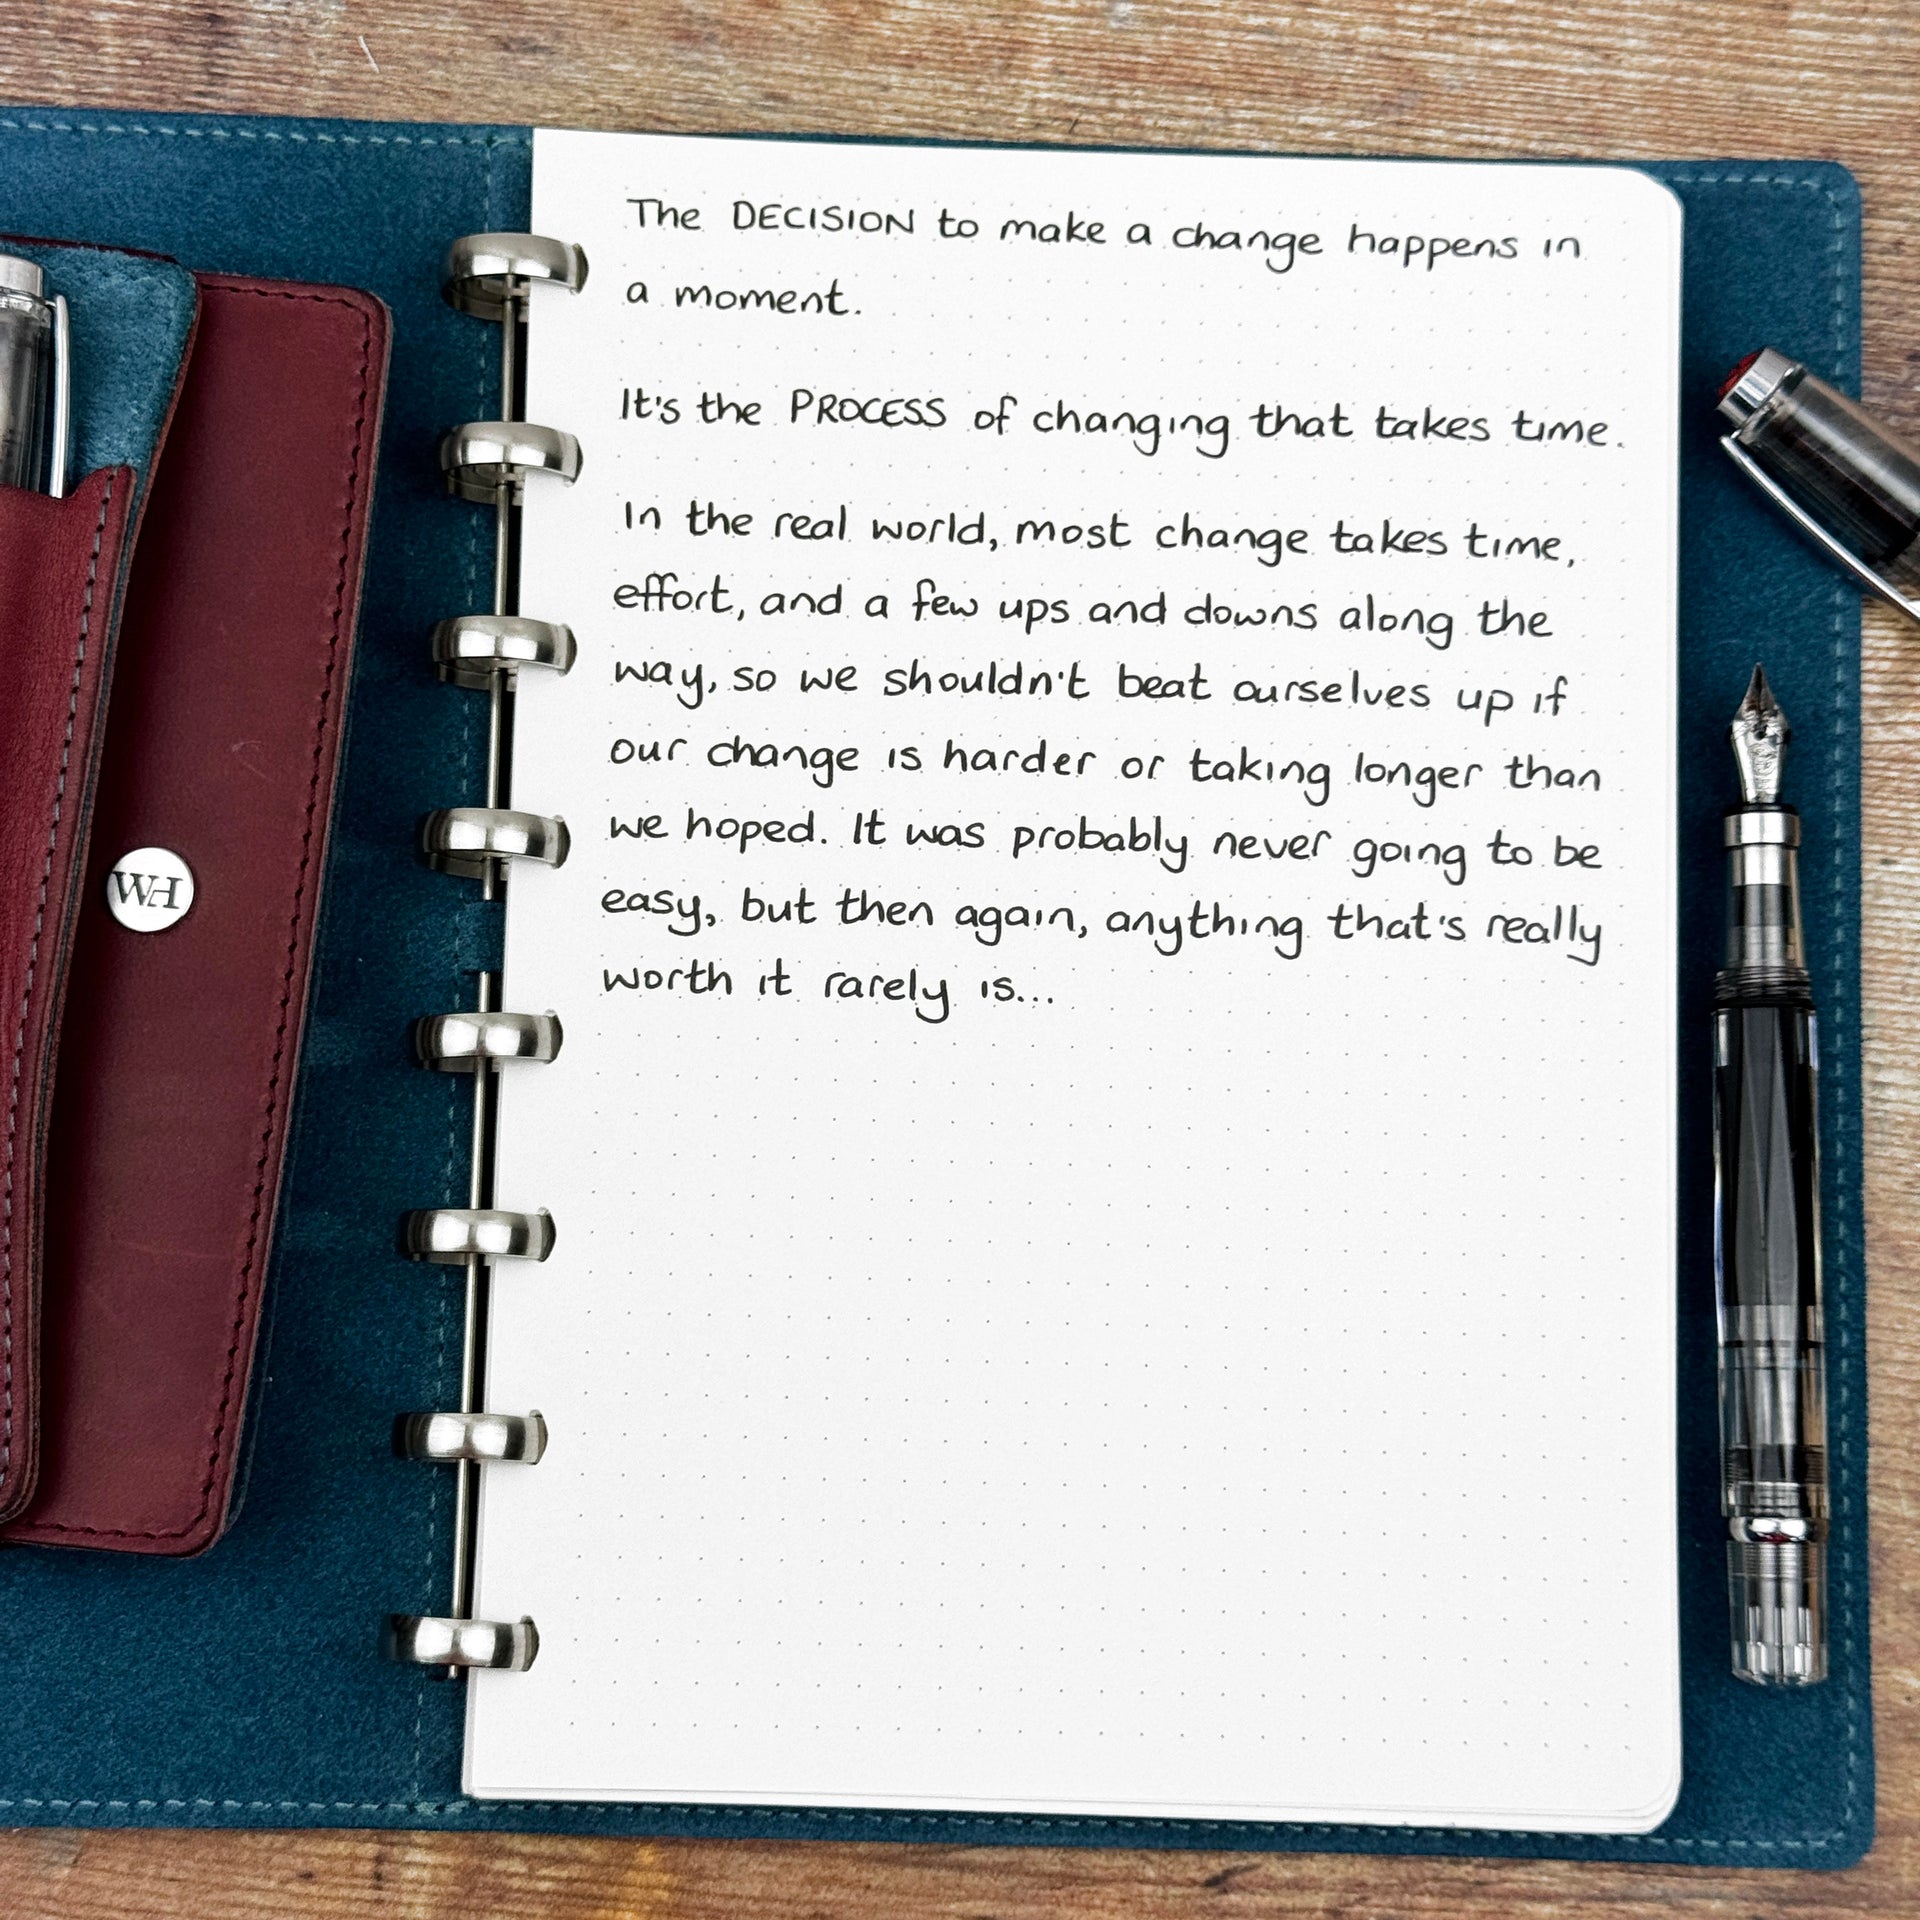 The DECISION to make a change happens in
a moment.
It's the PROCESS of changing that takes time.
In the real world, most change takes time,
effort, and a few ups and downs along the
way, so we shouldn't beat ourselves up if
our change is harder or taking longer than
we hoped. It was probably never going to be
easy, but then again, anything that's really
worth it rarely is...
WH